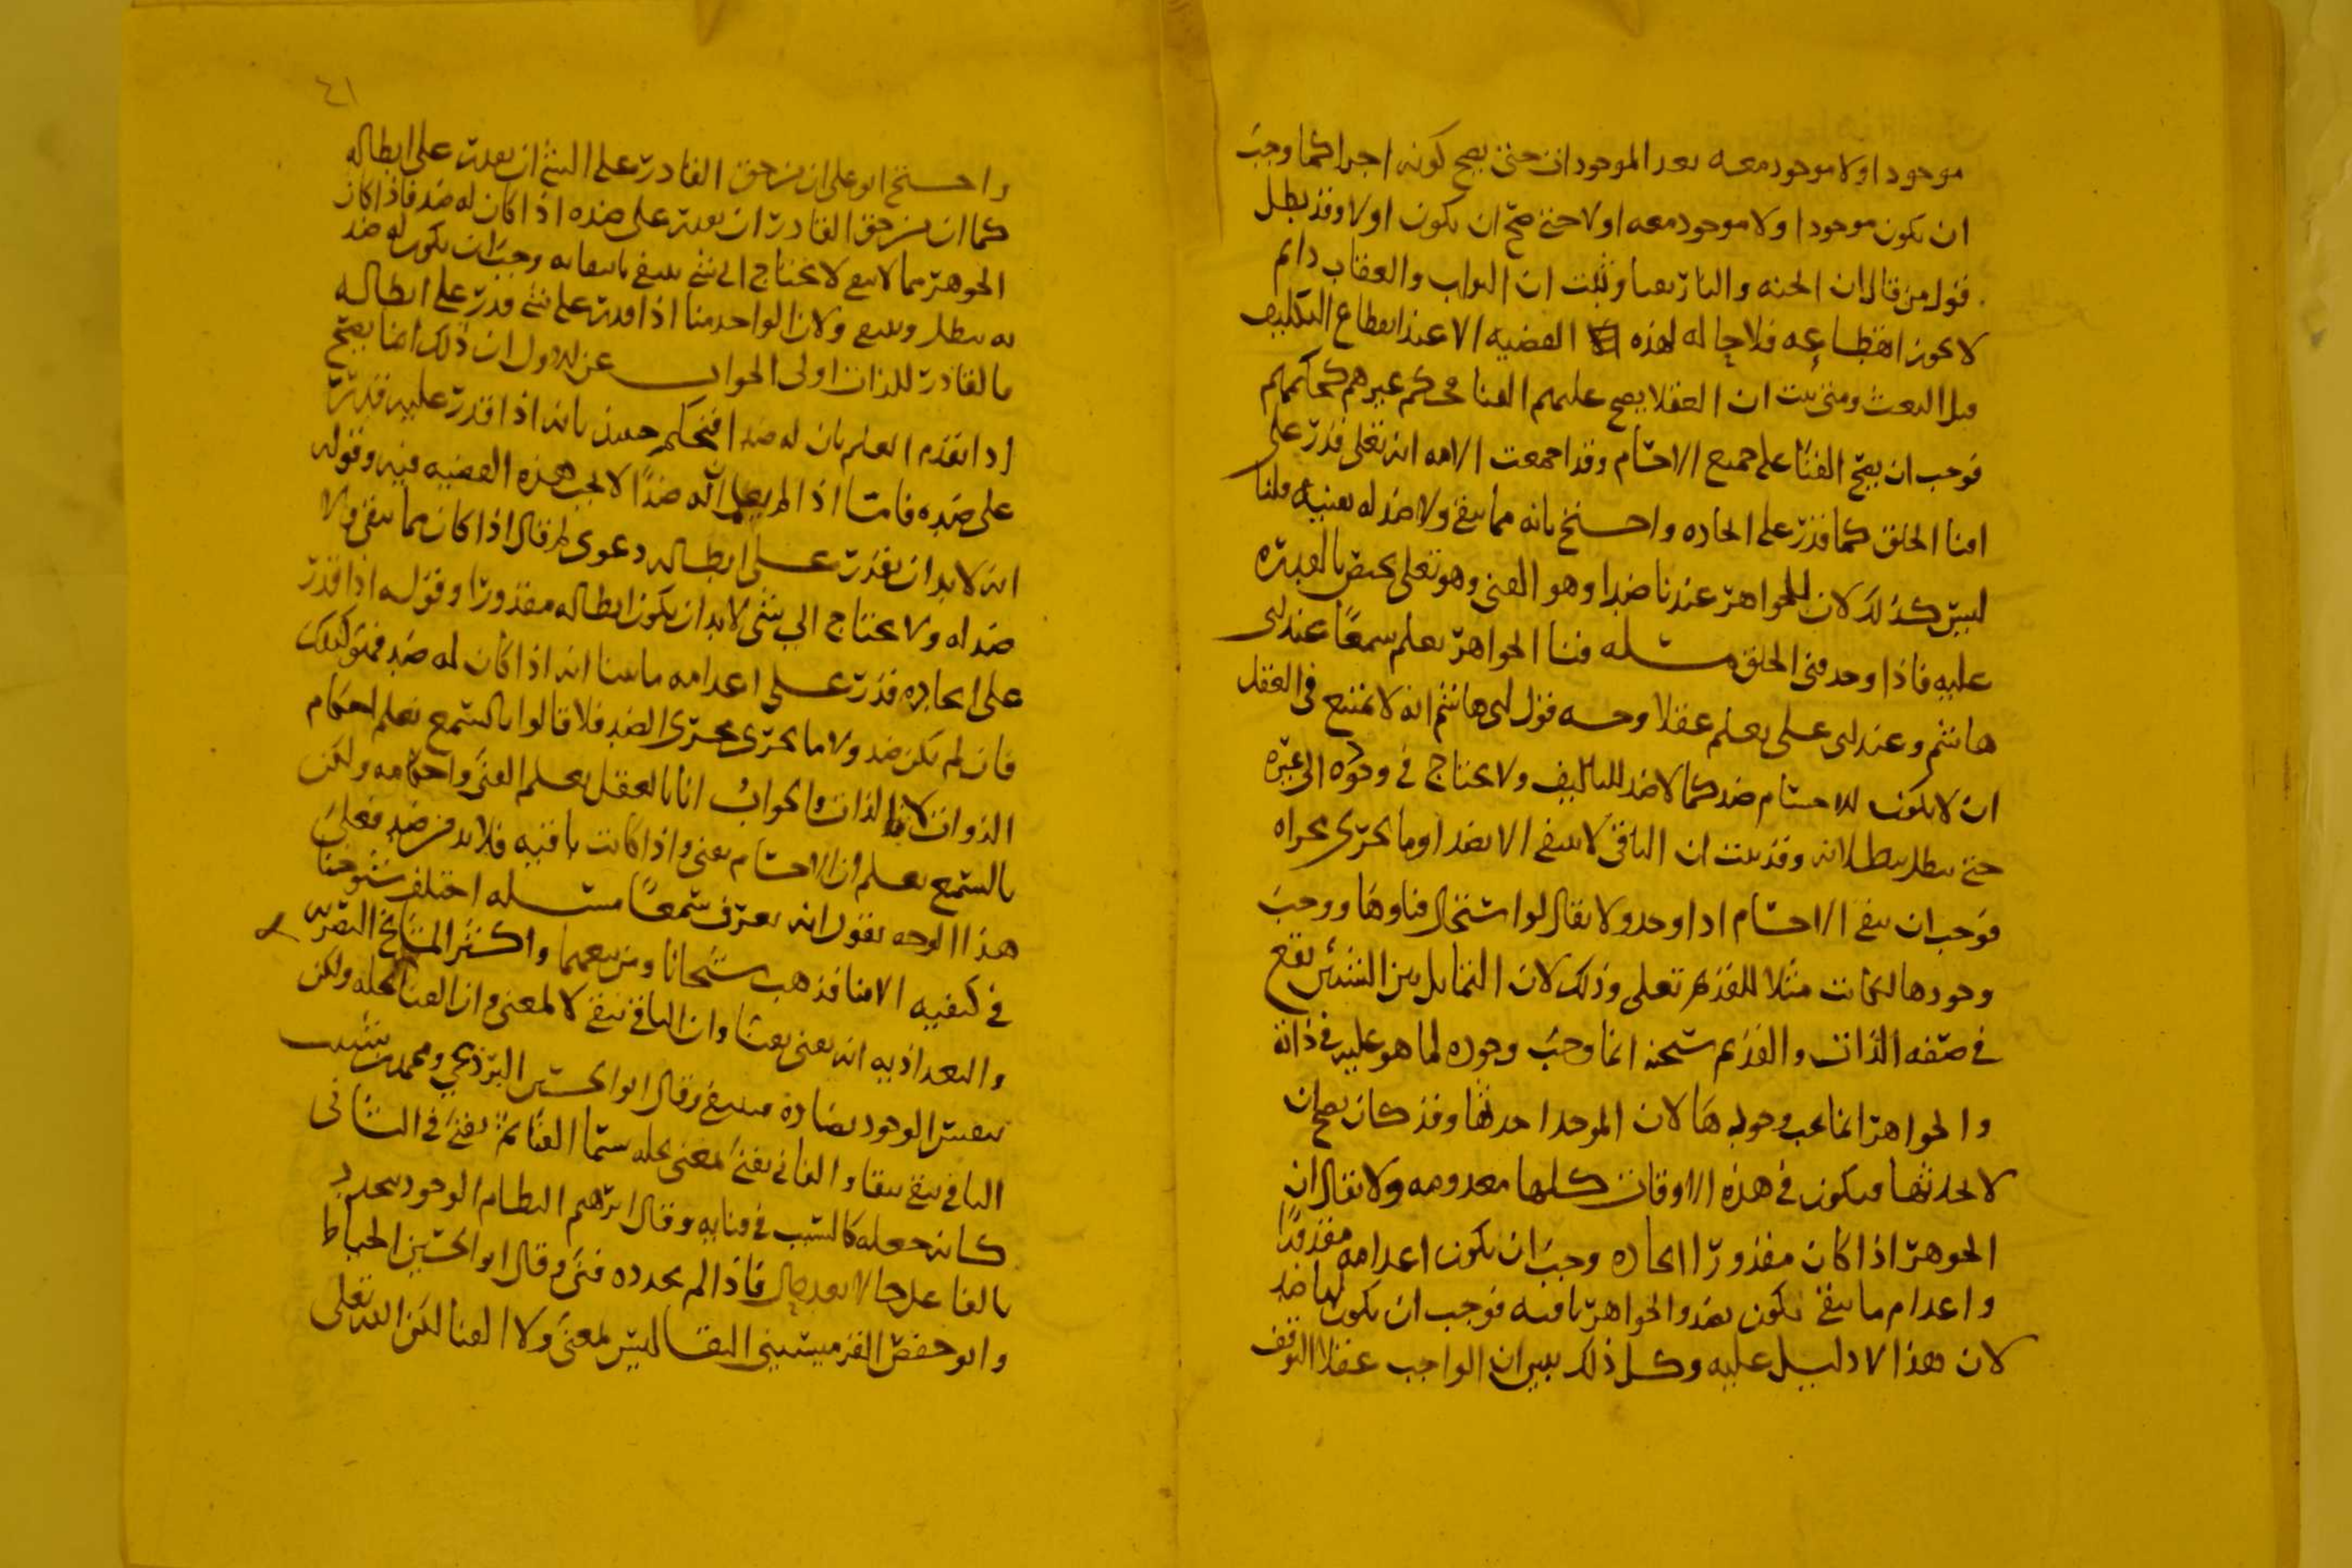 موجودا ولا موجود معه بعد الموجودات حتى يصح كونه اجرا كما وجب
ان يكون موجودا ولا موجود معه اولا حتى صح ان يكون اولا وقد بطل
قول من قال ان الجنه والنار يفنيا وثبت ان الثواب والعقاب دايم
لا يجوز انقطاعه فلا حاله لهذه القضيه الا عند انقطاع التكليف
قبل البعث ومتى ثبت ان العقلا يصح عليهم الفنا فحكم غيرهم كحكمهم
فوجب ان يصح الفنا على جميع الاجسام وقد اجمعت الامه انه تعلى قدر على
افنا الخلق كما قدر على ايجاده واحتج بانه مما يبقى ولا ضد له يفنيه قلنا
ليس كذلك لان للجواهر عندنا ضدا وهو الفنى وهو تعلى يختص بالقدره
عليه فاذا وجد فنى الخلق مسله فنا الجواهر يعلم سمعا عند ابى
هاشم وعند ابى على يعلم عقلا وجه قول ابى هاشم انه لا يمتنع فى العقل
ان لا يكون للاجسام ضد كما لا ضد للتاليف ولا يحتاج في وجوده الى غيره
حتى يبطل ببطلانه وقد ثبت ان الباقى لا ينتفى الا بضد او ما يجرى مجراه
فوجب ان يبقى الاجسام اذا وجد ولا يقال لو استحال فناوها ووجب
وجودها لكانت مثلا للقديم تعلى وذلك لان التماثل بين الشيئين يقع
في صفه الذات والقديم سبحنه انما وجب وجوده لما هو عليه في ذاته
والجواهر انما يجب وجودها لان الموجد احدثها وقد كان يصح ان
لا يحدثها فيكون في هذه الاوقات كلها معدومه ولا يقال ان
الجوهر اذا كان مقدورا ايجاده وجب ان يكون اعدامه مقدورا
واعدام ما يبقى يكون بضد والجواهر باقيه فوجب ان يكون لها ضد
لان هذا لا دليل عليه وكل ذلك يبين ان الواجب عقلا التوقف
٤١
واحتج ابو على ان من حق القادر على الشي ان يقدر على ابطاله
كما ان من حق القادر ان يقدر على ضده اذا كان له ضد فاذا كان
الجوهر مما لا يحتاج الى شي ينتفى بانتفايه وجب ان يكون له ضد
به يبطل وينتفى ولان الواحد منا اذا قدر على شي قدر على ابطاله
فالقادر للذات اولى الجواب عن الاول ان ذلك انما يصح
اذا تقدم العلم بان له ضدا فنحكم حينئذ بانه اذا قدر عليه قدر
على ضده فاما اذا لم يعلم ان له ضدا لا يجب هذه القضيه فيه وقوله
انه لا بد ان يقدر على ابطاله دعوى فان قال اذا كان مما يبقى ولا
ضد له ولا يحتاج الي شي لا بد ان يكون ابطاله مقدورا وقوله اذا قدر
على ايجاده قدر على اعدامه ما بينا انه اذا كان له ضد فهو كذلك
فان لم يكن ضد ولا ما يجرى مجرى الضد فلا قالوا بالسمع نعلم احكام
الذوات لا الذات والجواب انا بالعقل نعلم الفنى واحكامه ولكن
بالسمع نعلم ان الاجسام يفنى واذا كانت باقيه فلا بد من ضد فعلى
هذا الوجه نقول انه يعرف سمعا مسله اختلف شيوخنا
في كيفيه الافنا فذهب شيخانا ومن تبعهما واكثر المشايخ البصريه
والبغداذيه انه يفنى بفنا وان الباقى يبقى لا لمعنى وان الفنا يحله ولكن
بنفس الوجود يضاده فينتفى وقال ابو الحسين البرذعي ومحمد بن شبيب
الباقى يبقى ببقا والفانى يفنى لمعنى يحله سما الفنا ثم يفنى فى الثانى
كانه جعله كالسبب في فنايه وقال ابرهيم النظام الوجود يتجدد
بالفاعل حالا بعد حال فاذا لم يجدده فنى وقال ابو الحسين الخياط
وابو حفص القرميسينى البقا ليس لمعنى ولا الفنا لكن الله تعلى